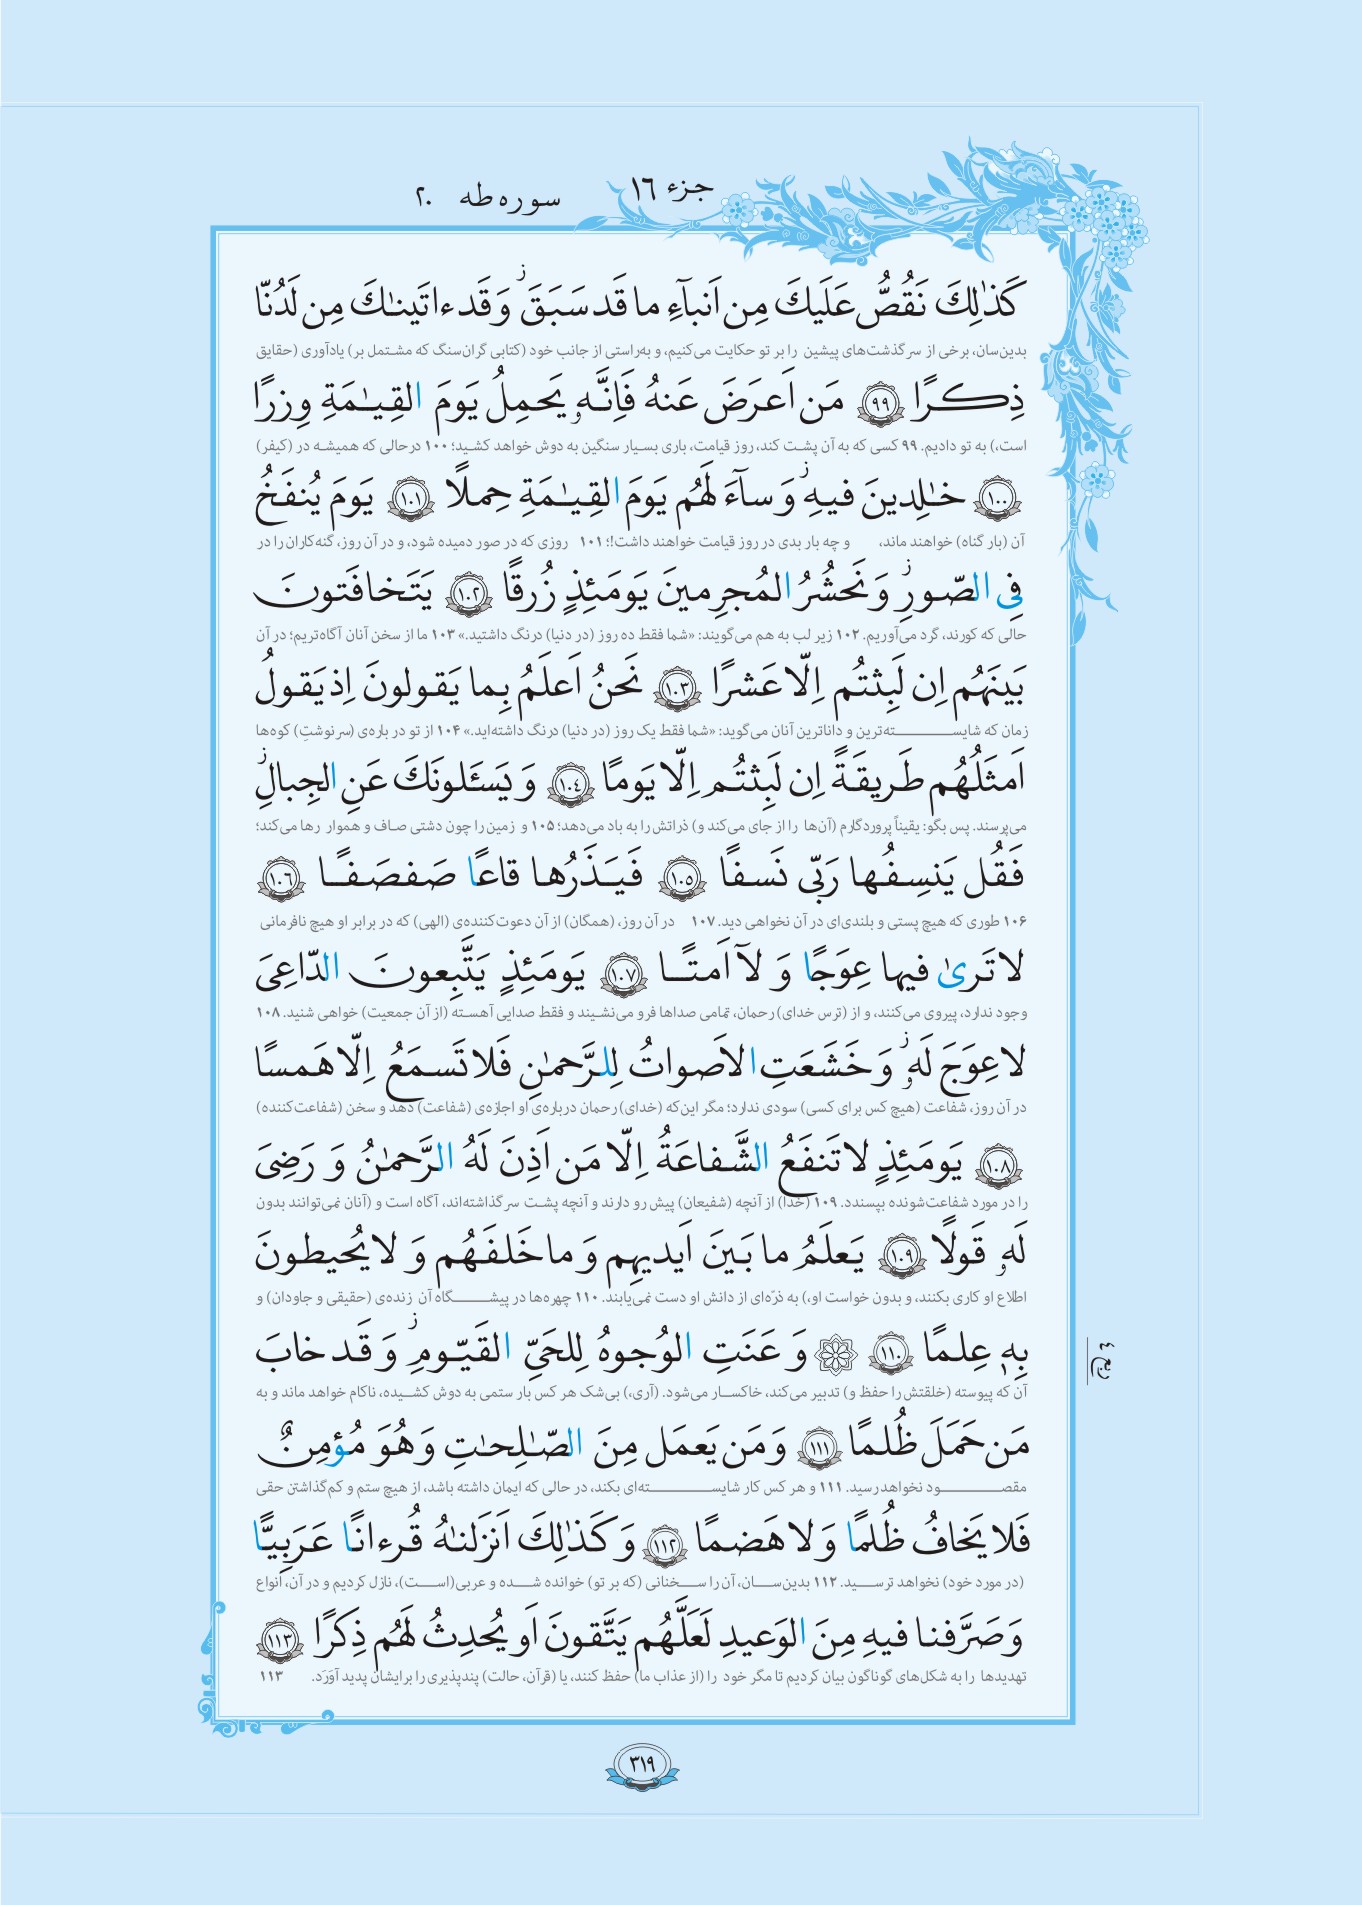 جزء ١٦
سوره طه ٢٠
كَذٰلِكَ نَقُصُّ عَلَيكَ مِن اَنباۤءِ ما قَد سَبَقَ ۚ وَ قَد ءاتَينٰكَ مِن لَدُنّا
بدین‌سان، برخی از سرگذشت‌های پیشین را بر تو حکایت می‌کنیم، و به‌راستی از جانب خود (کتابی گران‌سنگ که مشتمل بر) یادآوری (حقایق
ذِكـرًا ٩٩ مَن اَعرَضَ عَنهُ فَاِنَّهۥ يَحمِلُ يَومَ القِيٰمَةِ وِزرًا
است،) به تو دادیم. ۹۹ کسی که به آن پشت کند، روز قیامت، باری بسیار سنگین به دوش خواهد کشید؛ ۱۰۰ درحالی که همیشه در (کیفر)
١٠٠ خٰلِدينَ فيهِ ۚ وَ ساۤءَ لَهُم يَومَ القِيٰمَةِ حِملًا ١٠١ يَومَ يُنفَخُ
آن (بار گناه) خواهند ماند، و چه بار بدی در روز قیامت خواهند داشت!؛ ۱۰۱ روزی که در صور دمیده شود، و در آن روز، گنه‌کاران را در
فِى الصّورِ ۚ وَ نَحشُرُ المُجرِمينَ يَومَئِذٍ زُرقًا ١٠٢ يَتَخافَتونَ
حالی که کورند، گرد می‌آوریم. ۱۰۲ زیر لب به هم می‌گویند: «شما فقط ده روز (در دنیا) درنگ داشتید.» ۱۰۳ ما از سخن آنان آگاه‌تریم؛ در آن
بَينَهُم اِن لَبِثتُم اِلّا عَشرًا ١٠٣ نَحنُ اَعلَمُ بِما يَقولونَ اِذ يَقولُ
زمان که شایسته‌ترین و داناترین آنان می‌گوید: «شما فقط یک روز (در دنیا) درنگ داشته‌اید.» ۱۰۴ از تو در باره‌ی (سرنوشتِ) کوه‌ها
اَمثَلُهُم طَريقَةً اِن لَبِثتُم اِلّا يَومًا ١٠٤ وَ يَسـَٔلونَكَ عَنِ الجِبالِ ۚ
می‌پرسند. پس بگو: یقیناً پروردگارم (آن‌ها را از جای می‌کند و) ذراتش را به باد می‌دهد؛ ۱۰۵ و زمین را چون دشتی صاف و هموار رها می‌کند؛
فَقُل يَنسِفُها رَبّى نَسفًا ١٠٥ فَيَذَرُها قاعًا صَفصَفًا ١٠٦
۱۰۶ طوری که هیچ پستی و بلندی‌ای در آن نخواهی دید. ۱۰۷ در آن روز، (همگان) از آن دعوت‌کننده‌ی (الهی) که در برابر او هیچ نافرمانی
لا تَرىٰ فيها عِوَجًا وَ لاۤ اَمتًا ١٠٧ يَومَئِذٍ يَتَّبِعونَ الدّاعِىَ
وجود ندارد، پیروی می‌کنند، و از (ترس خدای) رحمان، تمامی صداها فرو می‌نشیند و فقط صدایی آهسته (از آن جمعیت) خواهی شنید. ۱۰۸
لا عِوَجَ لَهۥ ۚ وَ خَشَعَتِ الاَصواتُ لِلرَّحمٰنِ فَلا تَسمَعُ اِلّا هَمسًا
در آن روز، شفاعت (هیچ کس برای کسی) سودی ندارد؛ مگر این‌که (خدای) رحمان درباره‌ی او اجازه‌ی (شفاعت) دهد و سخن (شفاعت‌کننده)
١٠٨ يَومَئِذٍ لا تَنفَعُ الشَّفاعَةُ اِلّا مَن اَذِنَ لَهُ الرَّحمٰنُ وَ رَضِىَ
را در مورد شفاعت‌شونده بپسندد. ۱۰۹ (خدا) از آنچه (شفیعان) پیش رو دارند و آنچه پشت سر گذاشته‌اند، آگاه است و (آنان نمی‌توانند بدون
لَهۥ قَولًا ١٠٩ يَعلَمُ ما بَينَ اَيديهِم وَ ما خَلفَهُم وَ لا يُحيطونَ
اطلاع او کاری بکنند، و بدون خواست او،) به ذرّه‌ای از دانش او دست نمی‌یابند. ۱۱۰ چهره‌ها در پیشگاه آن زنده‌ی (حقیقی و جاودان) و
بِهۦ عِلمًا ١١٠ ۞ وَ عَنَتِ الوُجوهُ لِلحَىِّ القَيّومِ ۚ وَ قَد خابَ
آن که پیوسته (خلقتش را حفظ و) تدبیر می‌کند، خاکسار می‌شود. (آری،) بی‌شک هر کس بار ستمی به دوش کشیده، ناکام خواهد ماند و به
مَن حَمَلَ ظُلمًا ١١١ وَ مَن يَعمَل مِنَ الصّٰلِحٰتِ وَ هُوَ مُؤمِنٌ
مقصود نخواهد رسید. ۱۱۱ و هر کس کار شایسته‌ای بکند، در حالی که ایمان داشته باشد، از هیچ ستم و کم‌گذاشتن حقی
فَلا يَخافُ ظُلمًا وَ لا هَضمًا ١١٢ وَ كَذٰلِكَ اَنزَلنٰهُ قُرءانًا عَرَبِيًّا
(در مورد خود) نخواهد ترسید. ۱۱۲ بدین‌سان، آن را سخنانی (که بر تو) خوانده شده و عربی(است)، نازل کردیم و در آن، انواع
وَ صَرَّفنا فيهِ مِنَ الوَعيدِ لَعَلَّهُم يَتَّقونَ اَو يُحدِثُ لَهُم ذِكرًا ١١٣
تهدیدها را به شکل‌های گوناگون بیان کردیم تا مگر خود را (از عذاب ما) حفظ کنند، یا (قرآن، حالت) پندپذیری را برایشان پدید آوَرَد. ۱۱۳
ربع ٤
٣١٩